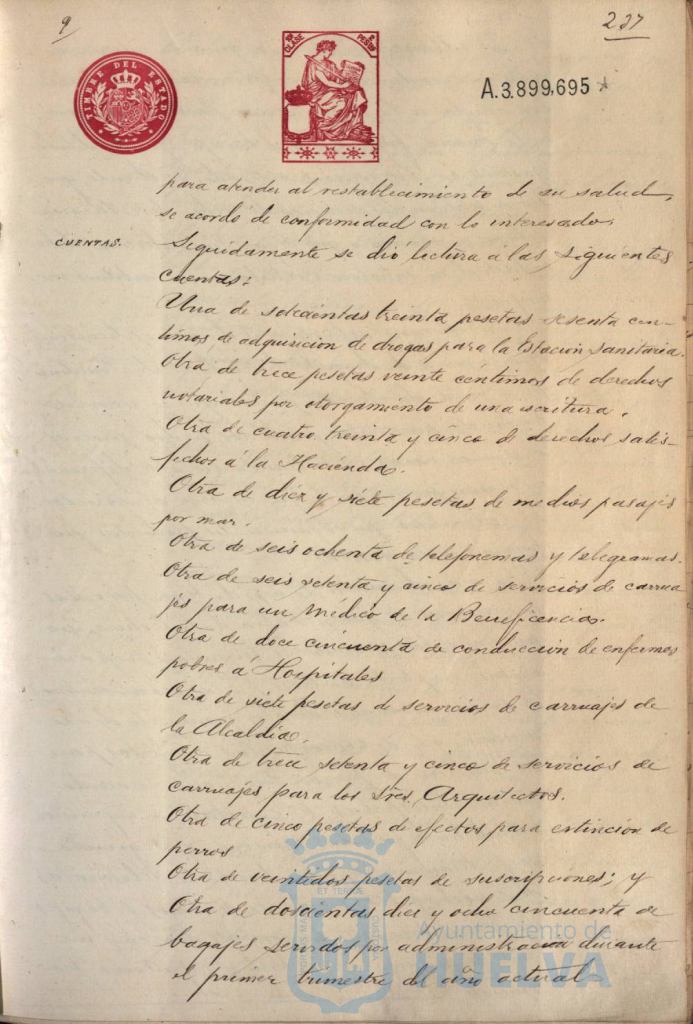 9
237
TIMBRE DEL ESTADO
CLASE
PESETAS
A.3.899,695
para atender al restablecimiento de su salud,
se acordó de conformidad con lo interesado.
CUENTAS.
Seguidamente se dió lectura á las siguientes
cuentas:
Una de setecientas treinta pesetas sesenta cen-
timos de adquisicion de drogas para la Estación sanitaria.
Otra de trece pesetas veinte céntimos de derechos
notariales por otorgamiento de una escritura.
Otra de cuatro treinta y cinco de derechos satis-
fechos á la Hacienda.
Otra de diez y siete pesetas de medios pasajes
por mar.
Otra de seis ochenta de telefonemas y telegramas.
Otra de seis setenta y cinco de servicios de carrua
jes para un médico de la Beneficencia.
Otra de doce cincuenta de conducción de enfermos
pobres á Hospitales
Otra de siete pesetas de servicios de carruajes de
la Alcaldia.
Otra de trece setenta y cinco de servicios de
carruajes para los Sres. Arquitectos.
Otra de cinco pesetas de efectos para extinción de
perros
Otra de veintidos pesetas de suscripciones; y
Otra de doscientas diez y ocho cincuenta de
bagajes servidos por administracion durante
el primer trimestre del año actual
Ayuntamiento de
HUELVA